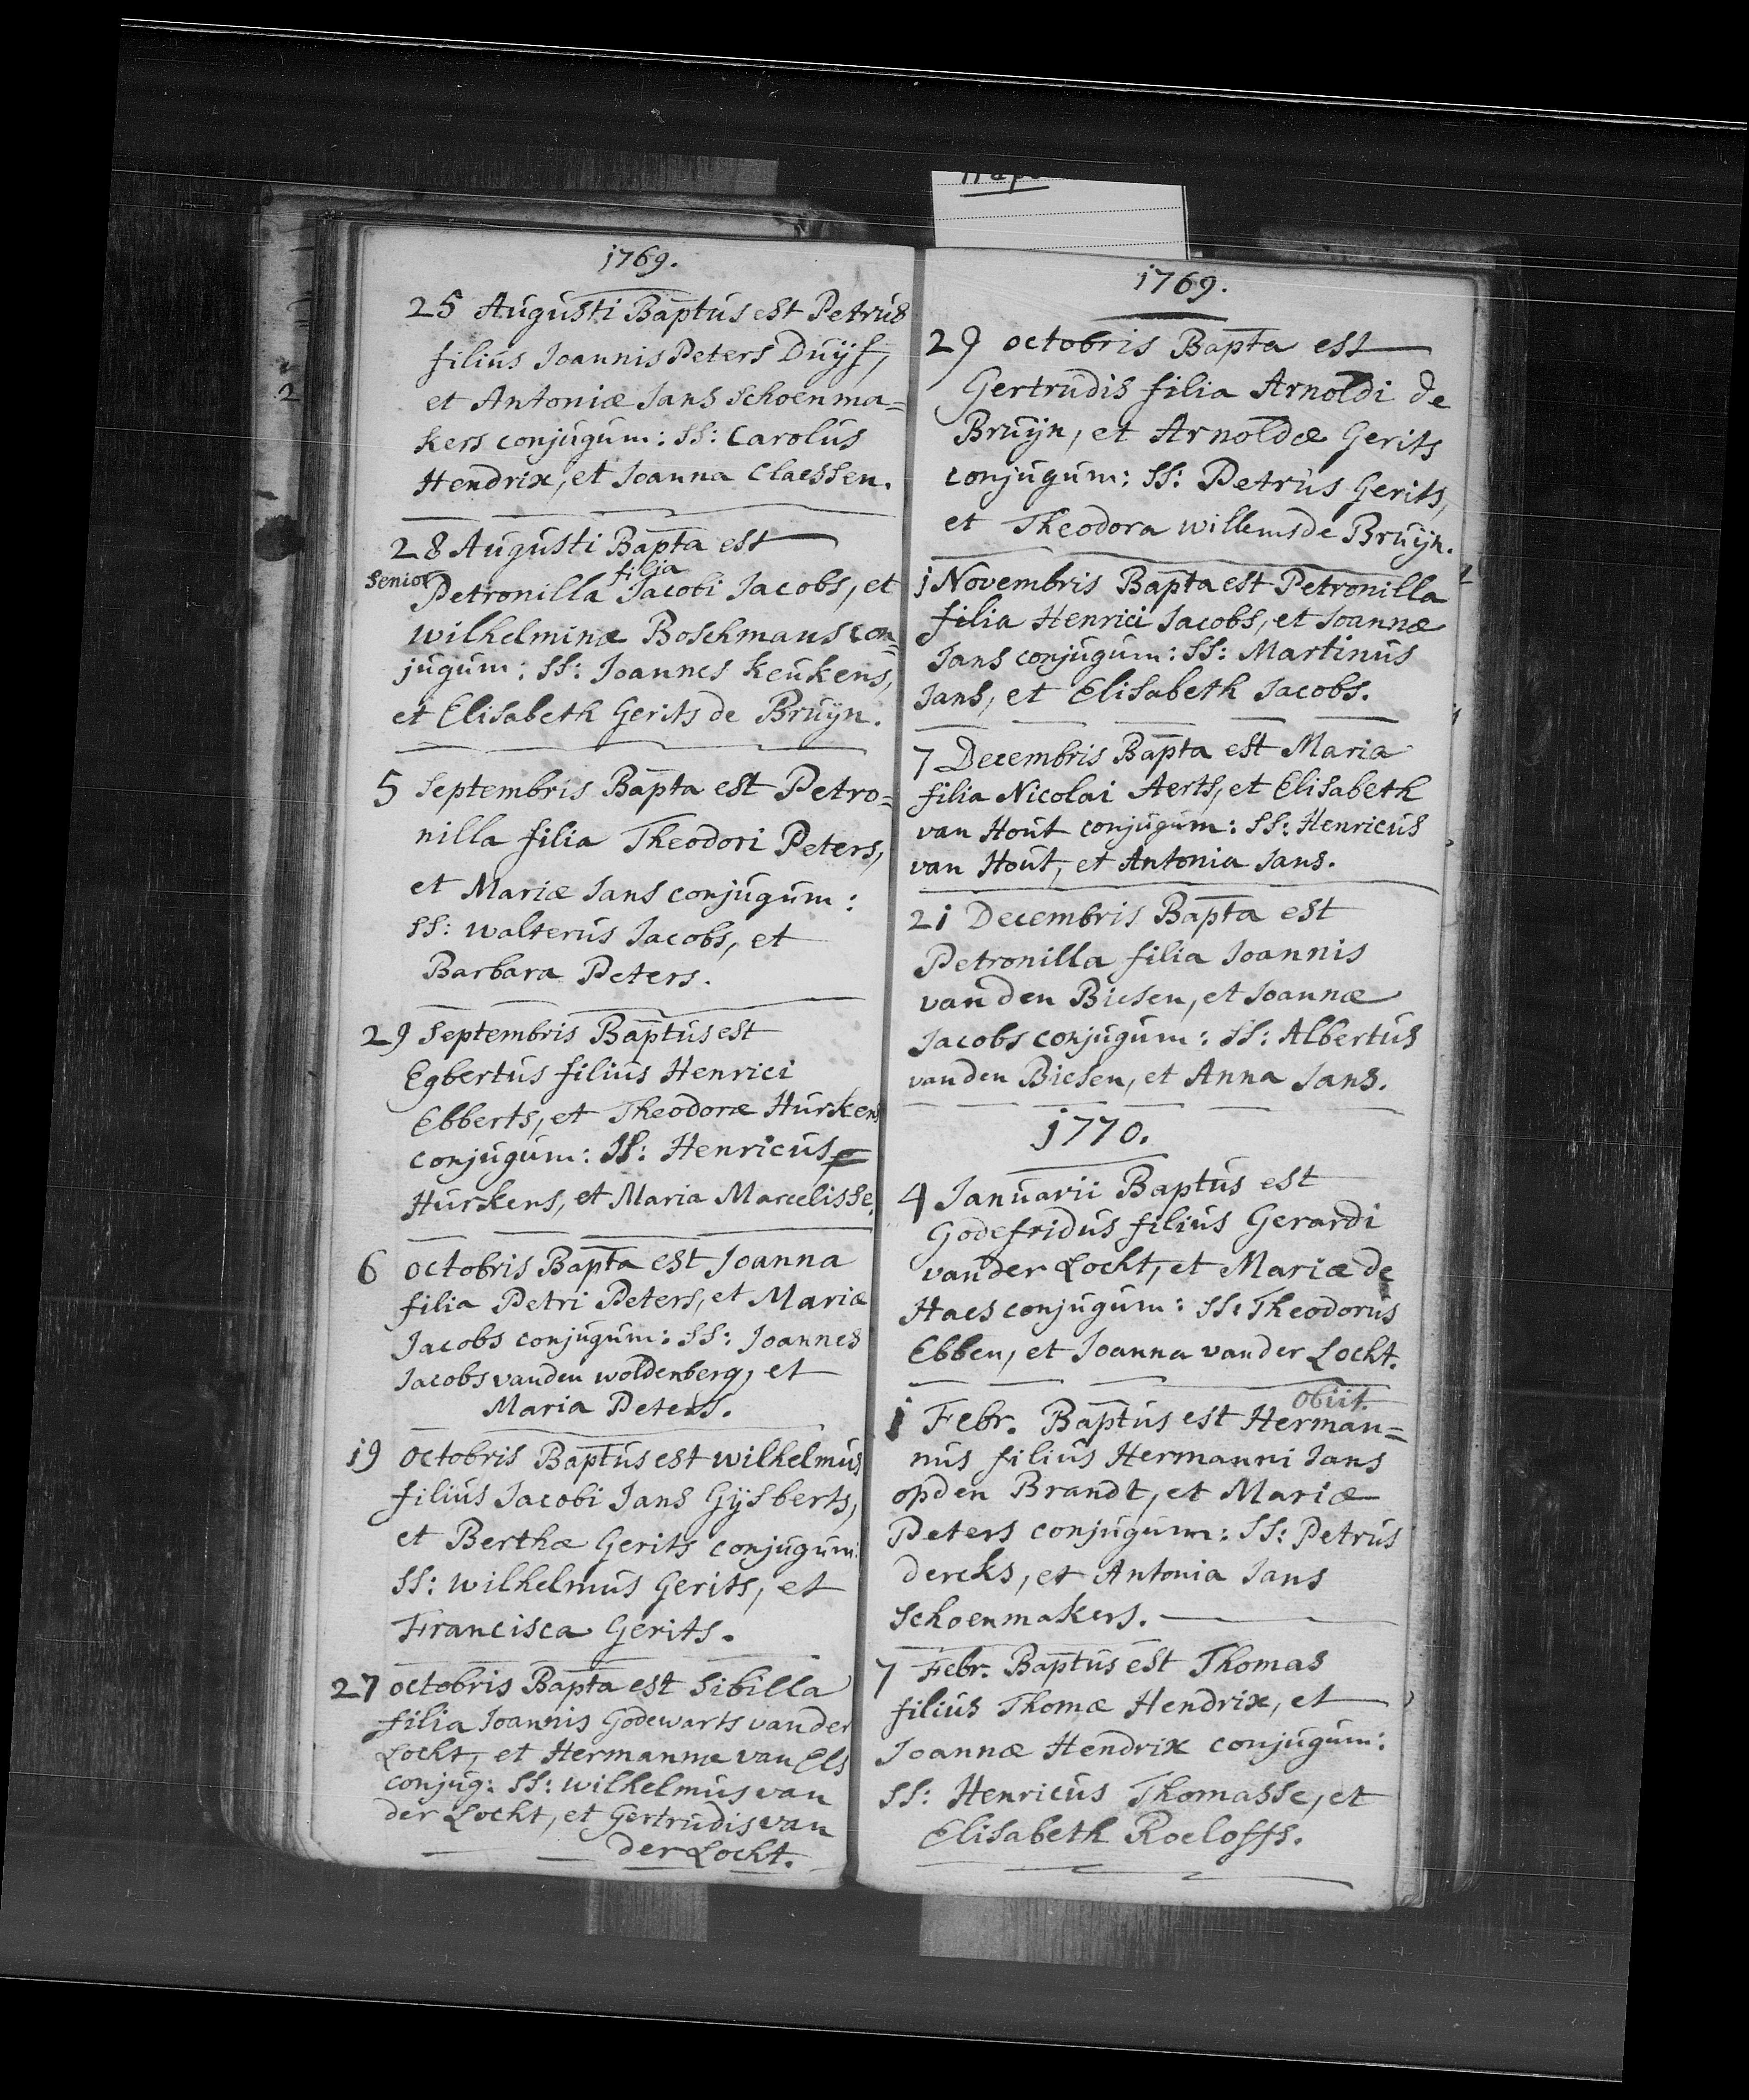 1769.
25 Augusti Baptus est Petrus
filius Joannis Peters Duijf,
et Antoniæ Jans Schoenma=
kers conjugum: SS: Carolus
Hendrix, et Joanna Claessen.
28 Augusti Bapta est
filia
senior Petronilla Jacobi Jacobs, et
wilhelminæ Boschmans con=
jugum: SS: Joannes Keukens,
et Elisabeth Gerits de Bruijn.
5 Septembris Bapta est Petro=
nilla filia Theodori Peters,
et Mariæ Jans conjugum:
SS: walterus Jacobs, et
Barbara Peters.
29 Septembris Baptus est
Egbertus filius Henrici
Ebberts, et Theodoræ Hurkens
conjugum: SS: Henricus
Hurkens, et Maria Marcelisse.
6 octobris Bapta est Joanna
filia Petri Peters, et Mariæ
Jacobs conjugum: SS: Joannes
Jacobs vanden woldenberg, et
Maria Peters.
19 octobris Baptus est wilhelmus
filius Jacobi Jans Gijsberts,
et Berthæ Gerits conjugum:
SS: wilhelmus Gerits, et
Francisca Gerits.
27 octobris Bapta est Sibilla
filia Joannis Godewarts vander
Locht, et Hermannæ van Els
conjug: SS: wilhelmus van
der Locht, et Gertrudis van
der Locht.
1769.
29 octobris Bapta est
Gertrudis filia Arnoldi de
Bruijn, et Arnoldæ Gerits
conjugum: SS: Petrus Gerits,
et Theodora willems de Bruijn.
1 Novembris Bapta est Petronilla
filia Henrici Jacobs, et Joannæ
Jans conjugum: SS: Martinus
Jans, et Elisabeth Jacobs.
7 Decembris Bapta est Maria
filia Nicolai Aerts, et Elisabeth
van Hout conjugum: SS: Henricus
van Hout, et Antonia Jans.
21 Decembris Bapta est
Petronilla filia Joannis
vanden Biesen, et Joannæ
Jacobs conjugum: SS: Albertus
vanden Biesen, et Anna Jans.
1770.
4 Januarii Baptus est
Godefridus filius Gerardi
vander Locht, et Mariæ de
Haes conjugum: SS: Theodorus
Ebben, et Joanna vander Locht.
obiit.
1 Febr. Baptus est Herman=
nus filius Hermanni Jans
opden Brandt, et Mariæ
Peters conjugum: SS: Petrus
dercks, et Antonia Jans
Schoenmakers.
7 Febr. Baptus est Thomas
filius Thomæ Hendrix, et
Joannæ Hendrix conjugum:
SS: Henricus Thomasse, et
Elisabeth Roeloffs.